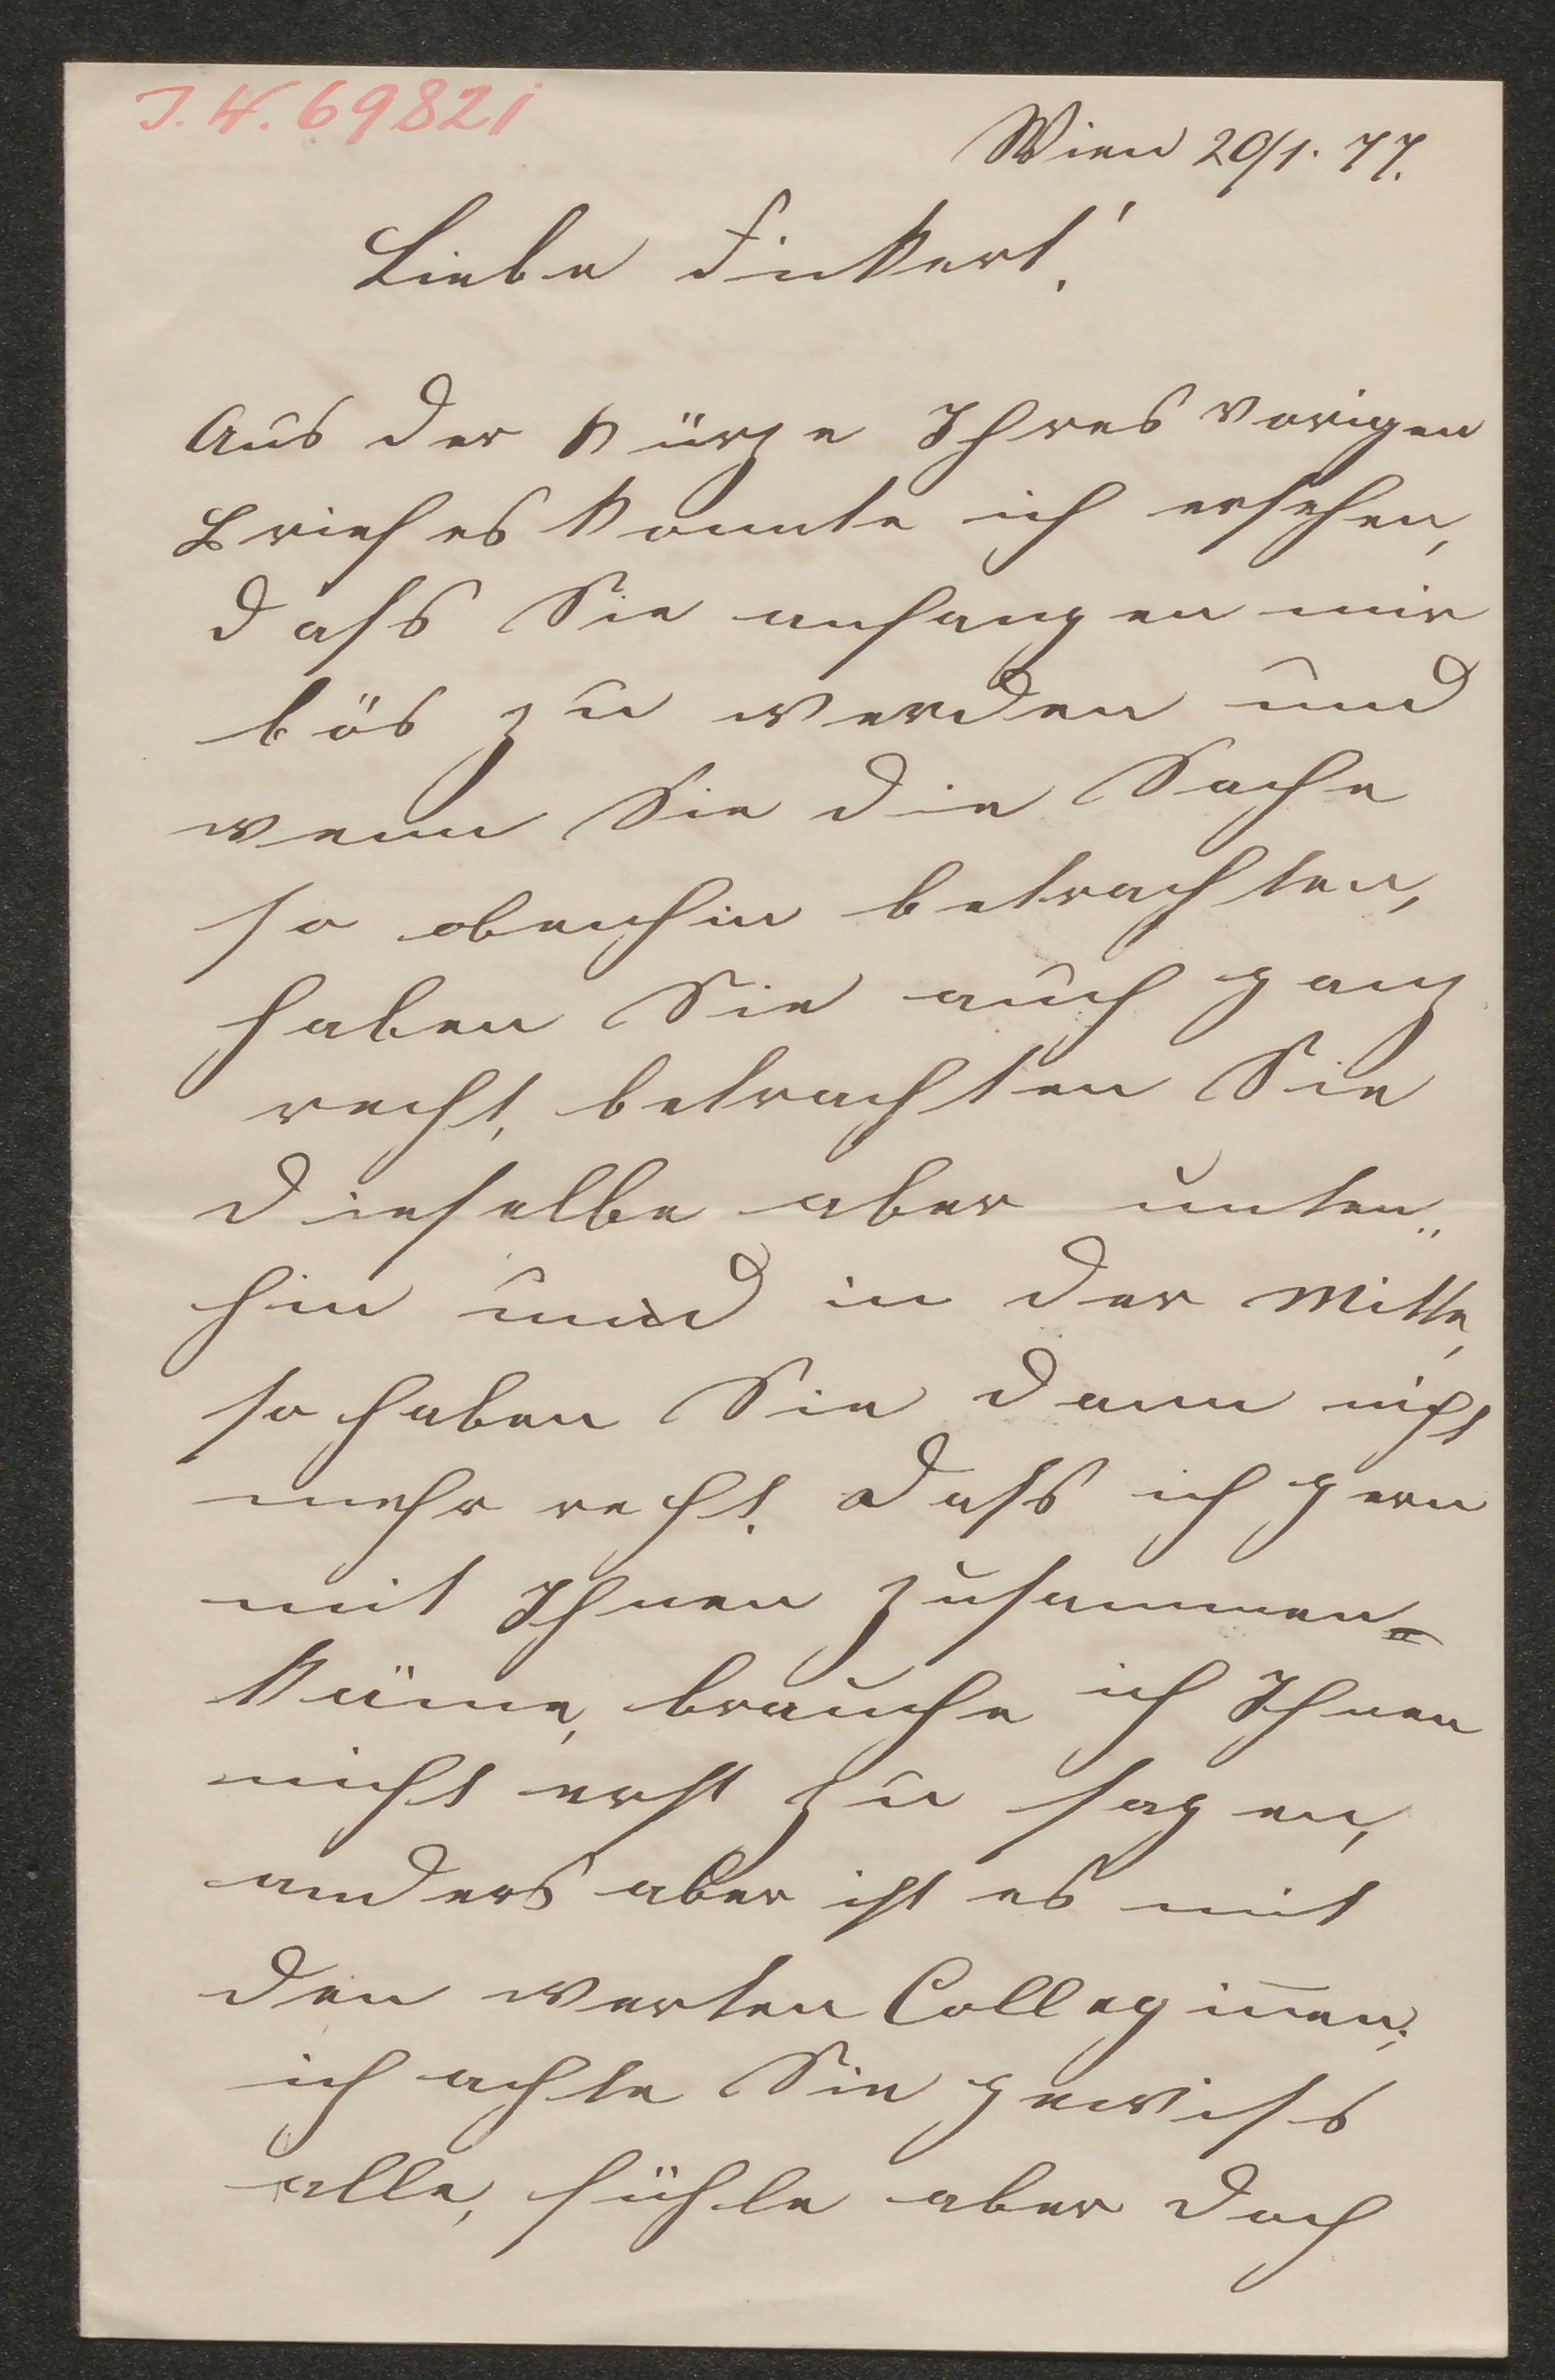 J. N. 69821
Wien 20/1. 77.
Liebe Finkert!
Aus der Kürze Ihres vorigen
Briefes konnte ich ersehen,
dass Sie anfangen mir
bös zu werden und
wenn Sie die Sache
so obenhin betrachten,
haben Sie auch ganz
recht, betrachten Sie
dieselbe aber unten-
hin und in der Mitte,
so haben Sie dann nicht
mehr recht. Dass ich gern
mit Ihnen zusammen-
käme, brauche ich Ihnen
nicht erst zu sagen,
anders aber ist es mit
den werten Colleginen;
ich achte Sie gewiss
alle, fühle aber doch